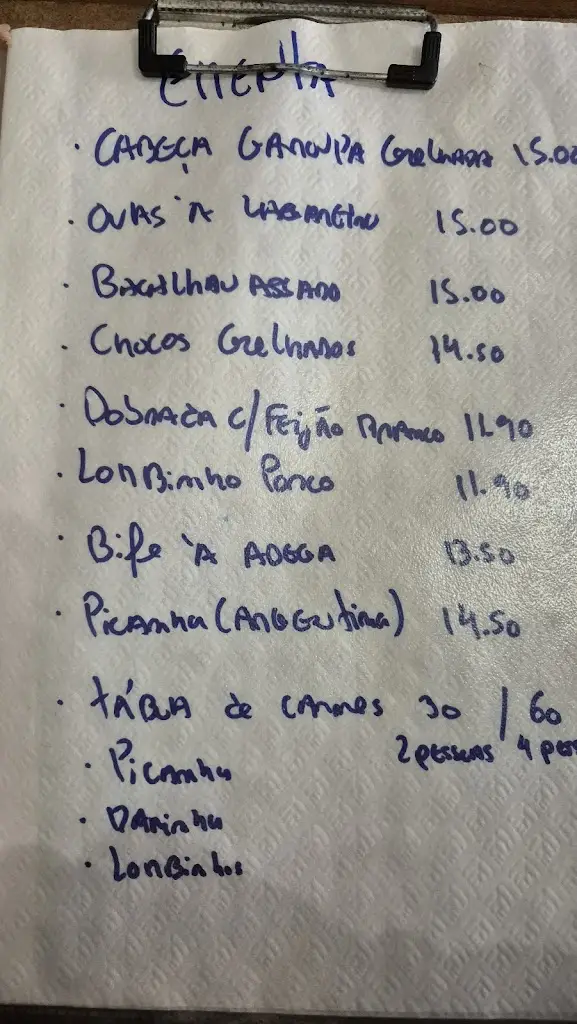 EMENTA
· CABEÇA GAROUPA GRELHADA 15.00
· OVAS À LAGAREIRO 15.00
· BACALHAU ASSADO 15.00
· CHOCOS GRELHADOS 14.50
· DOBRADA C/ FEIJÃO BRANCO 11.90
· LOMBINHO PORCO 11.90
· Bife À ADEGA 13.50
· PICANHA (ARGENTINA) 14.50
· TÁBUA de CARNES 30 / 60
2 PESSOAS 4 PES
· PICANHA
· LOMBINHOS